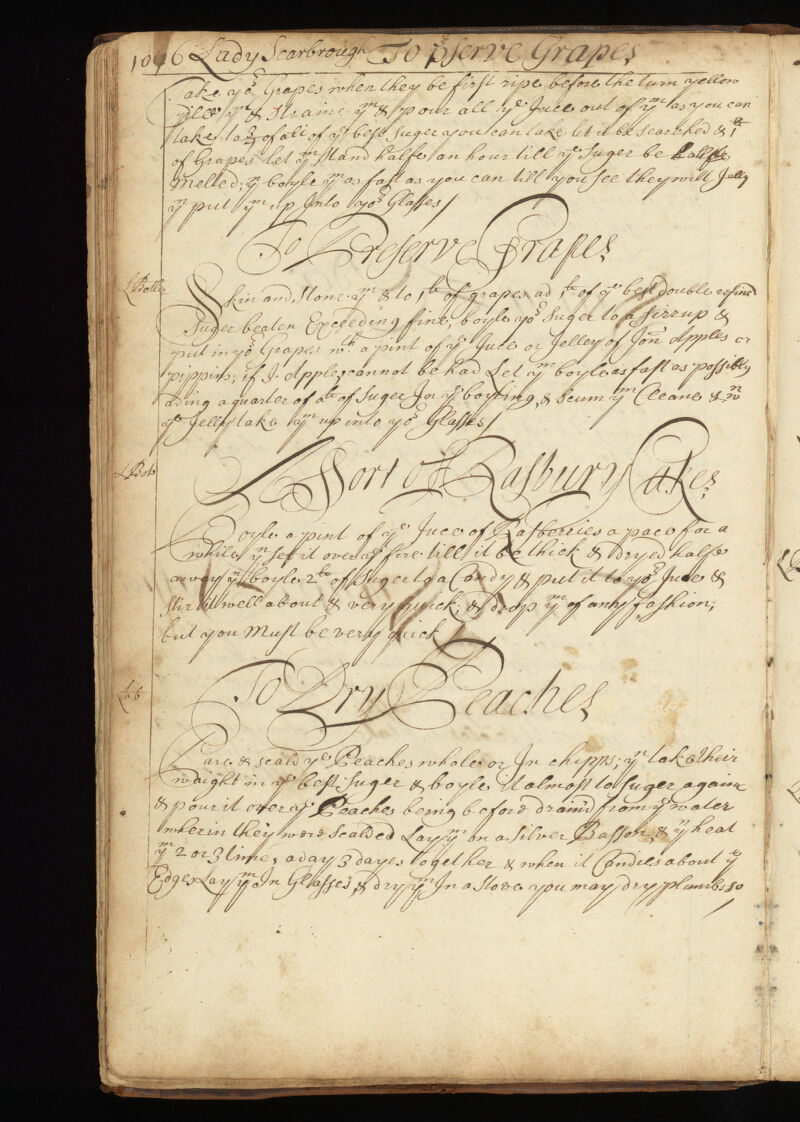 1096 Lady Scarbrough To pserve Grapes
Take yor Grapes when they be first ripe before the turn yellow
ym & straine ym & pour all ye Juce out of ym as you can
take to of all of ye best Suger you can take let it be searched & 1lb
of Grapes let ym stand halfe an hour till ye Suger be halfe
melted; yn boyle ym as fast as you can till you see they will Jelly
yn put ym up Into yor Glasses/
To Preserve Grapes
LBolle
Skin and stone ym & to 1lb of grapes ad 1lb of ye best double refined
Suger beaten Exceeding fine, boyle yor Suger to a sirrup &
put in yor Grapes wth a pint of ye Juce or Jelley of Jon Apples or
pippins; if J. Apples cannot be had Let ym boyle as fast as possibly
ading a quarter of a lb of Suger In ye boyling, & scum ym Cleane & wn
ye Jelly take ym up into yor Glasses/
LBolle
A Sort of Rasbury Cakes
Boyle a pint of ye Juce of Rasberries a pace for a
while yn set it over a fire till it be thick & dryed halfe
away yn boyle 2lb of Suger to a Candy & put it to yor Juce &
stir it well about & very quick; & drop ym of any fashion;
but you Must be very quick
To Dry Peaches
Pare & scald ye Peaches whole or In chipps; yn take their
waight in ye best Suger & boyle it almost to Suger againe
& pour it over ye Peaches being before draind from ye water
wherin they were scalded Lay ym on a silver Basson, & yn heat
ym 2 or 3 times a day 3 dayes together & when it Candies about ye
Edges Lay ym In Glasses & dry ym In a stove you may dry plambs so